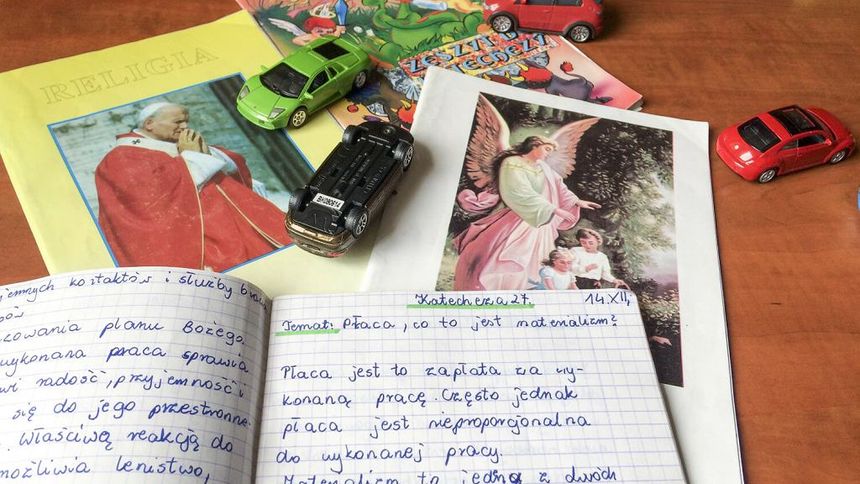 RELIGIA
ZESZYT D
TECHEZY
BH080614
jemnych kontaktów i służby
owania planu Bożego.
wykonana praca sprawia
radość, przyjemność i
się do jego przestronne
. Właściwą reakcją do
możliwia lenistwo,
Katecheza 27.
14.XII,
Temat: Płaca, co to jest materializm?
Płaca jest to zapłata za wy-
konaną pracę. Często jednak
płaca jest nieproporcjonalna
do wykonanej pracy.
Materializm to jedna z dwóch